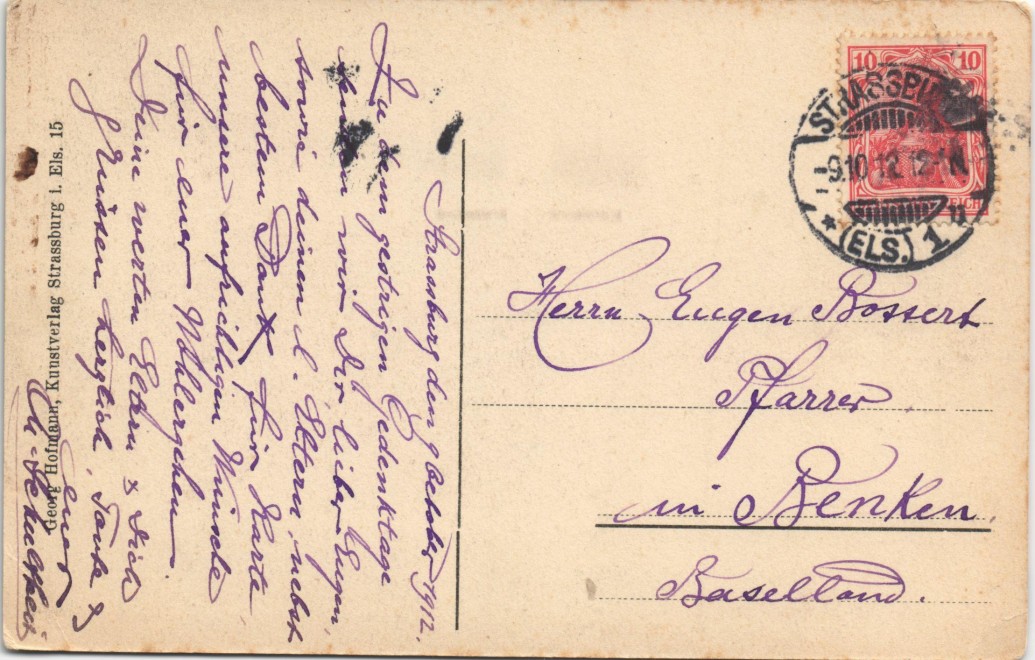 Strassburg den 9 October 1912.
Zu dem gestrigen Gedenktage
wir Dir lieber Eugen,
sowie deinen l. Eltern, nebst
bestem Dank für Karte
unsere aufrichtigen Wünsche
für euer Wohlergehen.
Deine werten Eltern & Dich
Grüssen herzlich, Tante &
Georg Hofmann, Kunstverlag Strassburg i. Els. 15
10 10
STRASSBURG
9.10.12.12-1N
* (ELS.) 1 u
EICH
Herrn Eugen Bossert
Pfarrer.
in Benken.
Baselland.